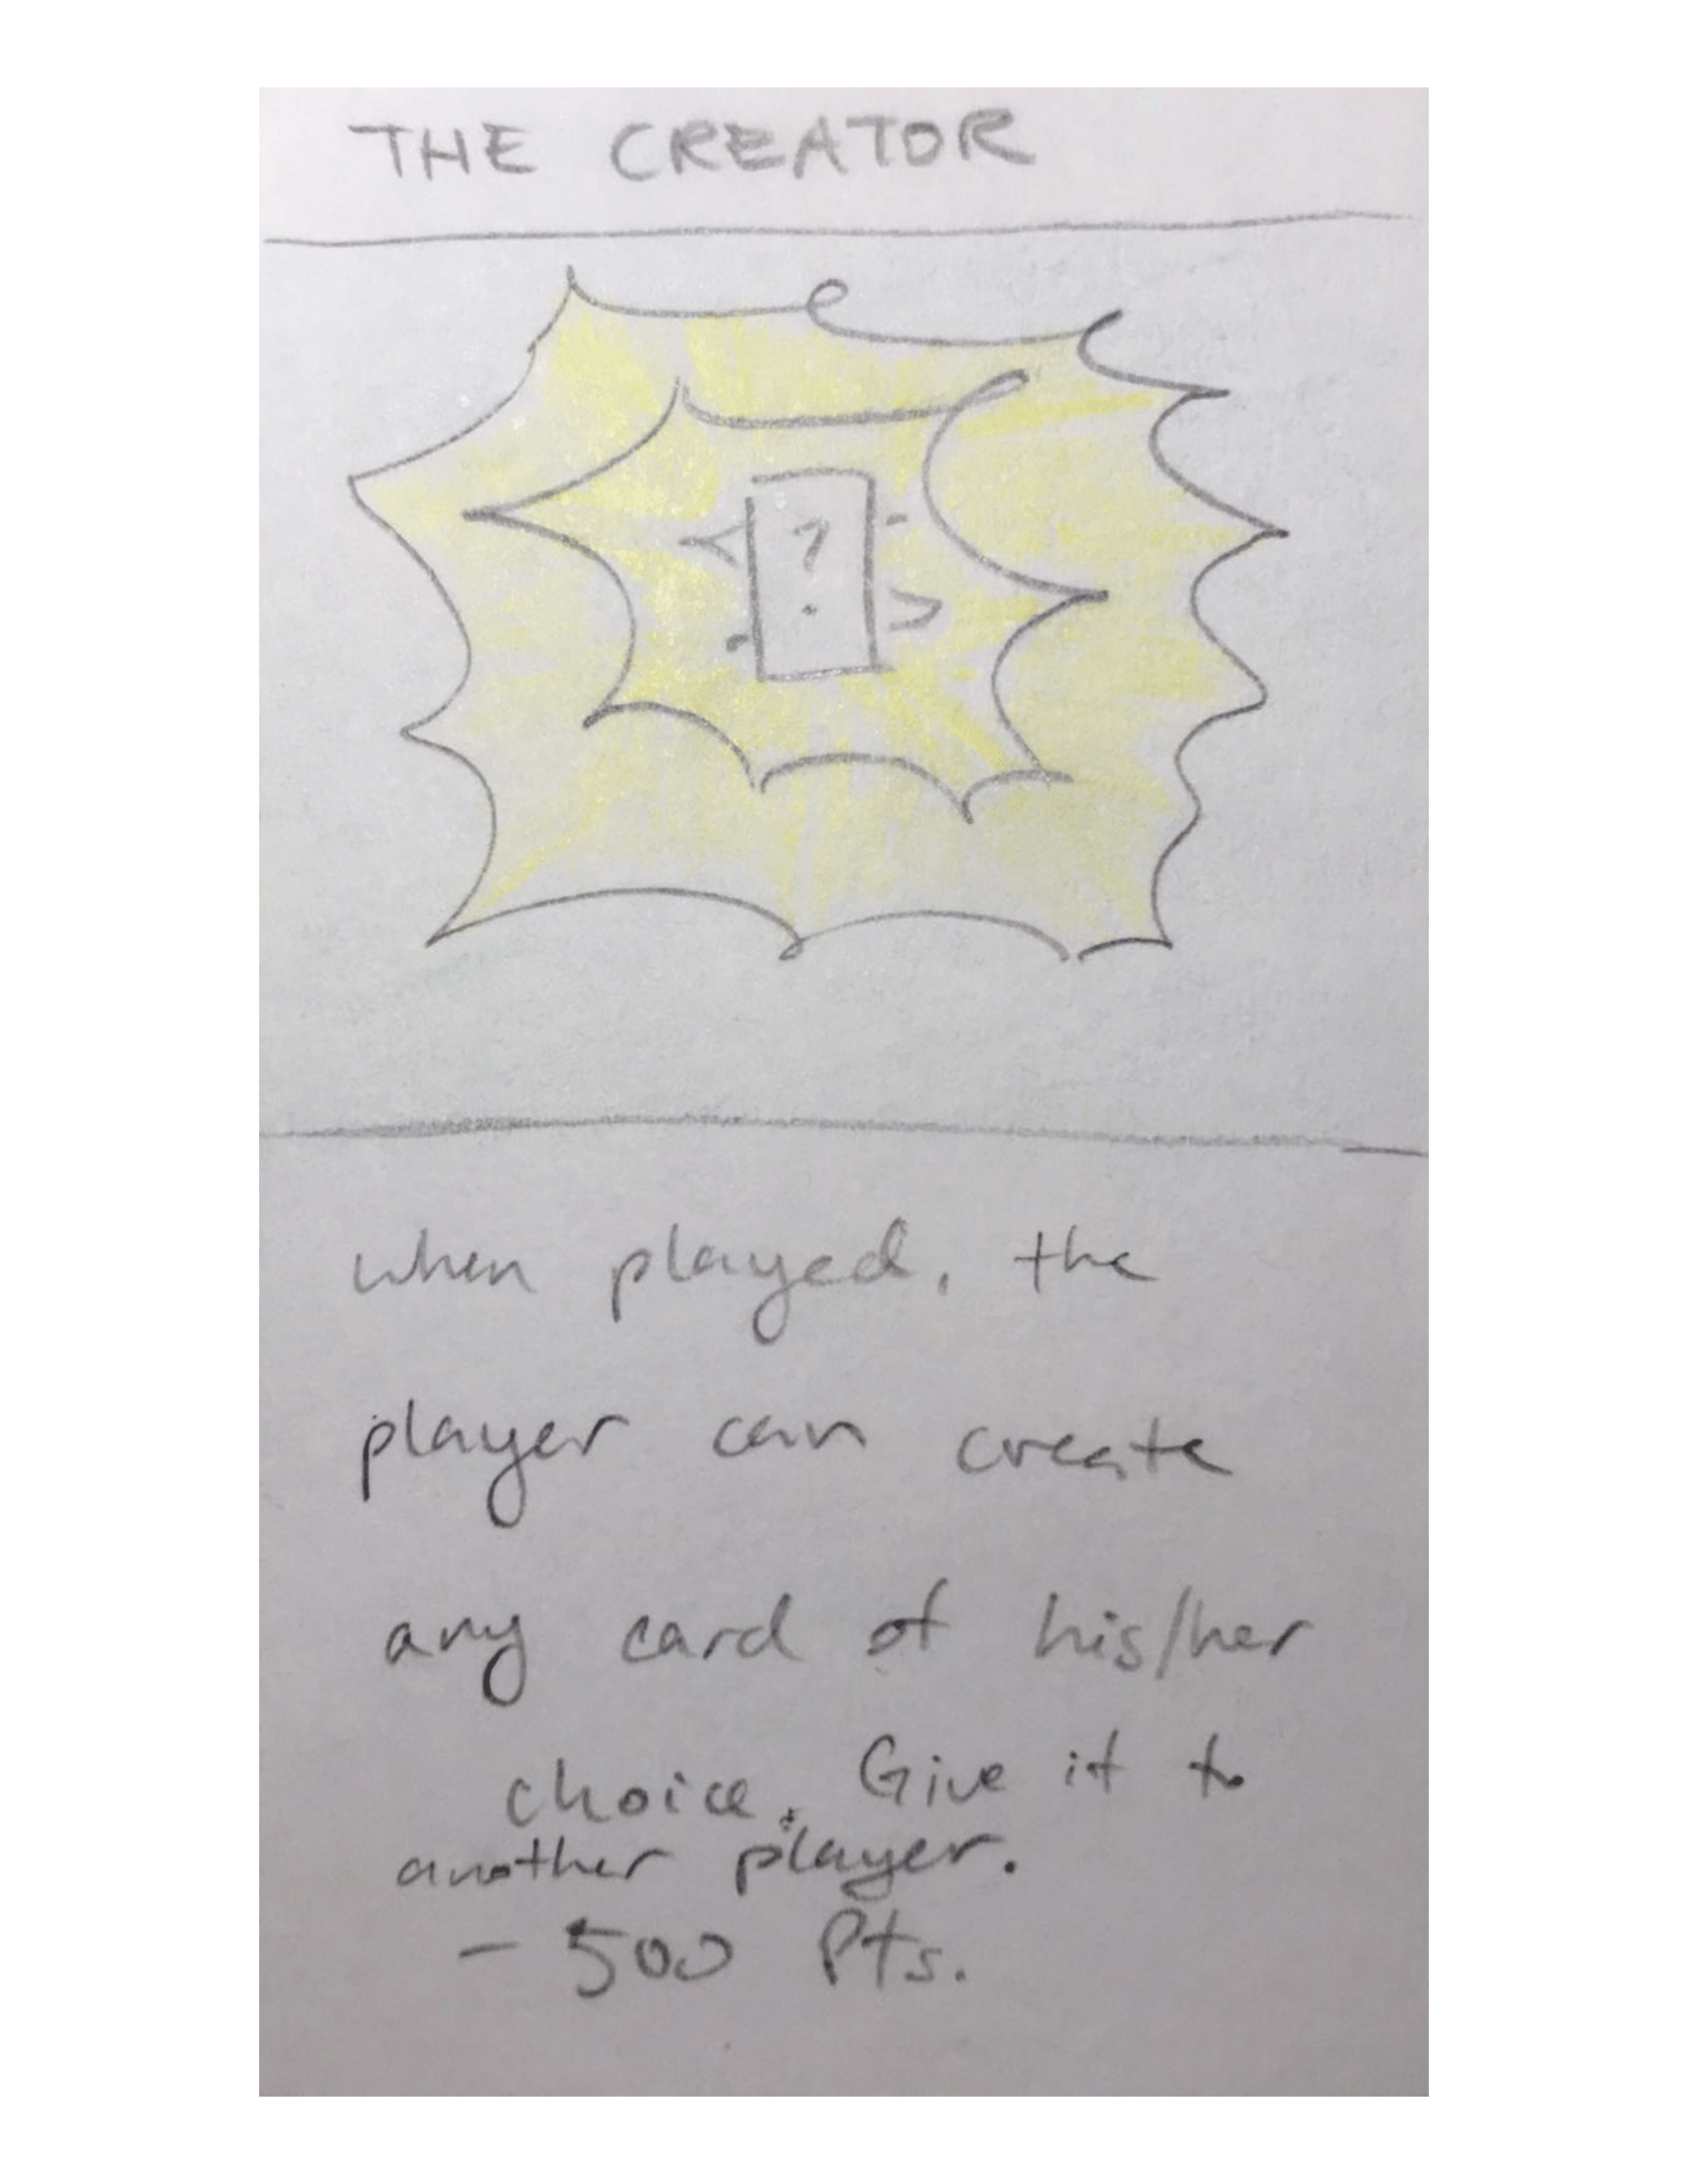 THE CREATOR
?
when played, the
player can create
any card of his/her
choice. Give it to
another player.
- 500 Pts.